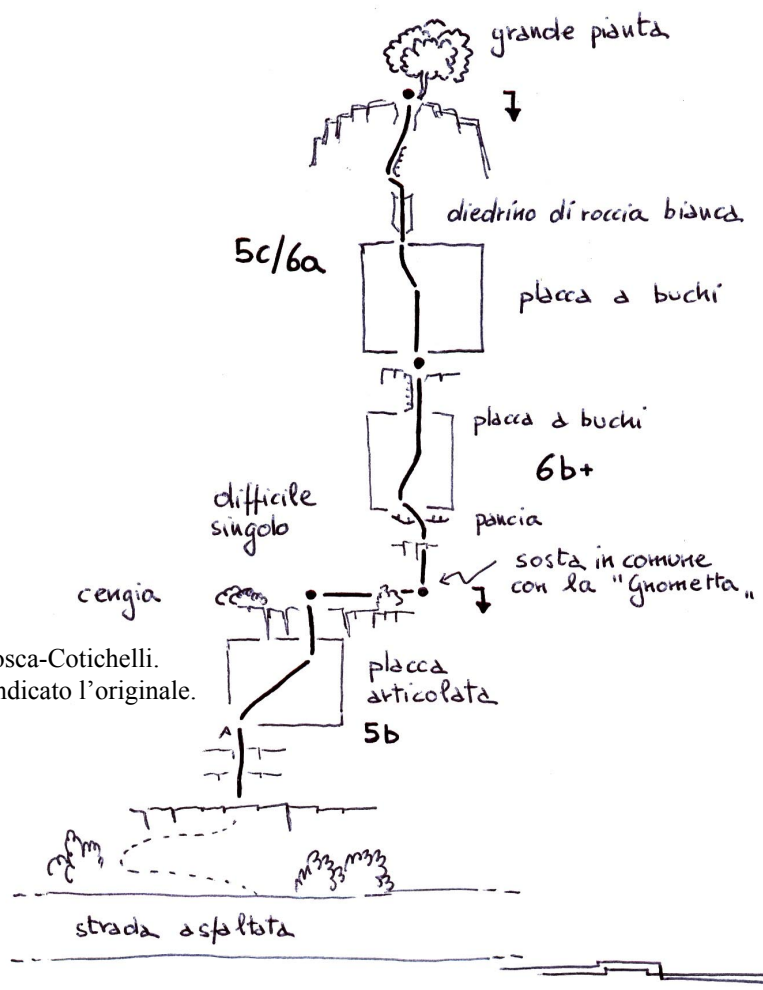 grande pianta
diedrino di roccia bianca
5c/6a
placca a buchi
placca a buchi
6b+
difficile
singolo
pancia
sosta in comune
con la "Gnometta"
cengia
osca-Cotichelli.
ndicato l'originale.
placca
articolata
A
5b
strada asfaltata